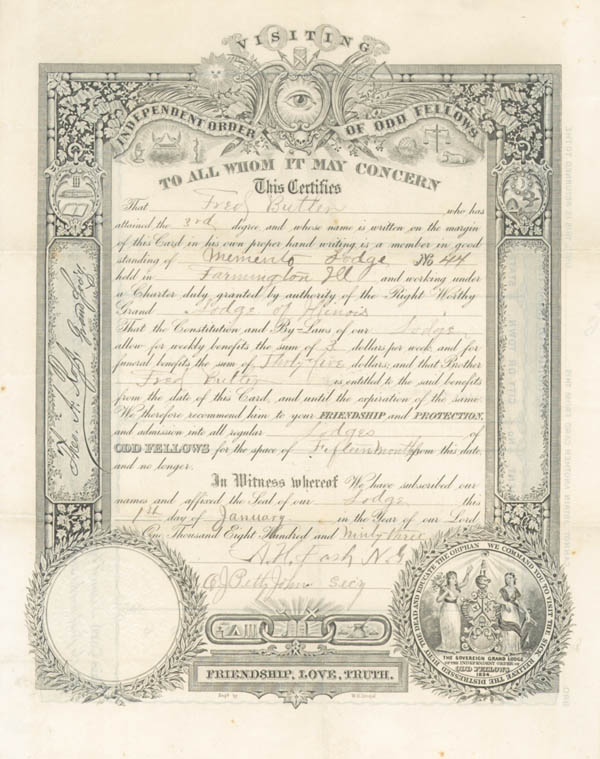 VISITING
INDEPENDENT ORDER OF ODD FELLOWS
TO ALL WHOM IT MAY CONCERN
This Certifies
That Fred Butler who has
attained the 3rd degree and whose name is written on the margin
of this Card in his own proper hand writing is a member in good
standing of Memento Lodge No 44
held in Farmington Ill and working under
a Charter duly granted by authority of the Right Worthy
Grand Lodge of Illinois
That the Constitution and By-Laws of our Lodge
allow for weekly benefits the sum of 3 dollars per week and for
funeral benefits the sum of Thirty-five dollars; and that Brother
Fred Butler is entitled to the said benefits
from the date of this Card, and until the expiration of the same.
We therefore recommend him to your FRIENDSHIP and PROTECTION,
and admission into all regular Lodges of
ODD FELLOWS for the space of Fifteen months from this date,
and no longer.
In Witness whereof We have subscribed our
names and affixed the Seal of our Lodge this
1st day of January in the Year of our Lord
One Thousand Eight Hundred and Ninty Three
N.G
Secy
WE COMMAND YOU TO VISIT THE SICK, RELIEVE THE DISTRESSED, BURY THE DEAD AND EDUCATE THE ORPHAN
THE SOVEREIGN GRAND LODGE
OF THE INDEPENDENT ORDER OF
ODD FELLOWS
1834
FRIENDSHIP, LOVE, TRUTH.
Engd by